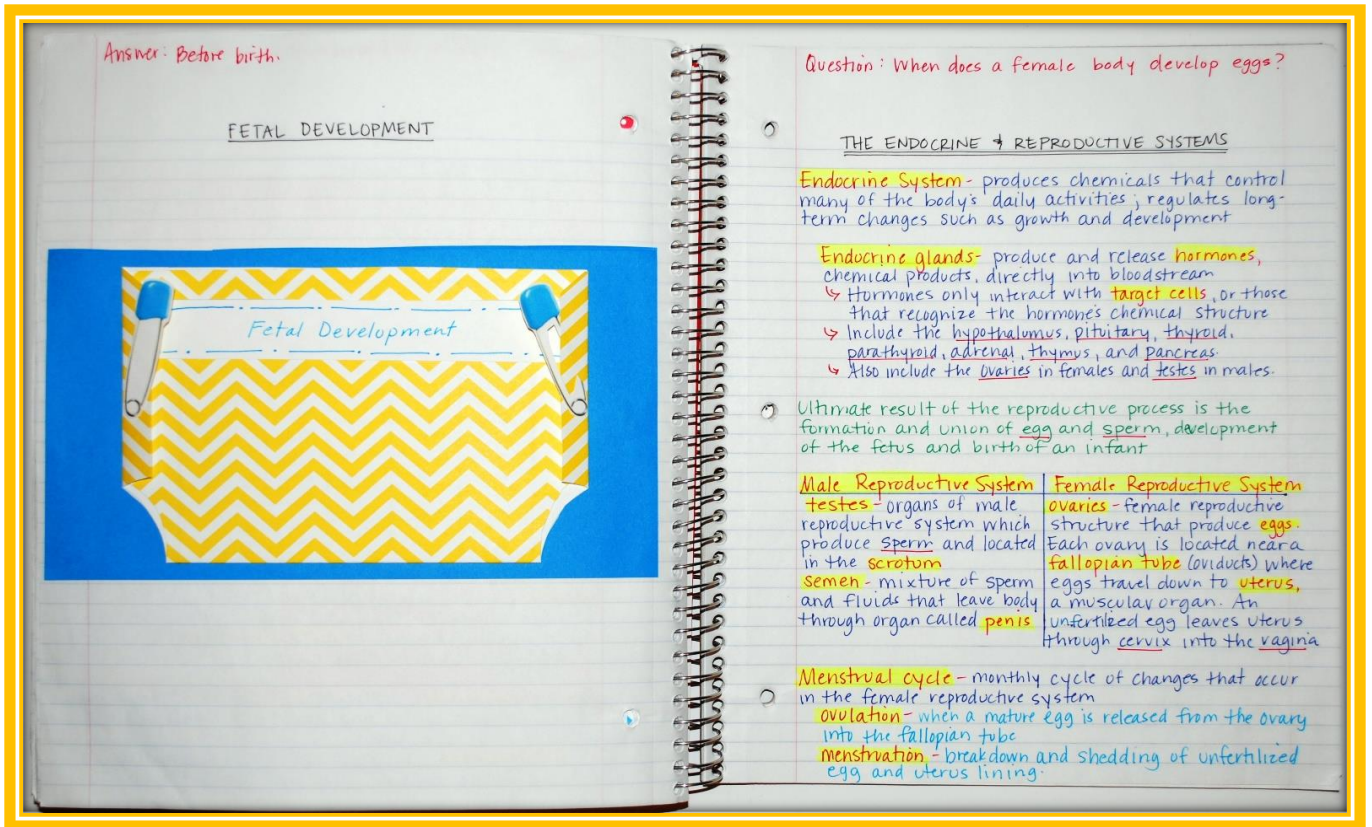 Answer: Before birth.
FETAL DEVELOPMENT
Fetal Development
Question: When does a female body develop eggs?
THE ENDOCRINE & REPRODUCTIVE SYSTEMS
Endocrine System - produces chemicals that control
many of the body's daily activities; regulates long-
term changes such as growth and development
Endocrine glands - produce and release hormones,
chemical products, directly into bloodstream
↳ Hormones only interact with target cells, or those
that recognize the hormone's chemical structure
↳ Include the hypothalumus, pituitary, thyroid,
parathyroid, adrenal, thymus, and pancreas.
↳ Also include the ovaries in females and testes in males.
Ultimate result of the reproductive process is the
formation and union of egg and sperm, development
of the fetus and birth of an infant
Male Reproductive System
testes - organs of male
reproductive system which
produce sperm and located
in the scrotum
semen - mixture of sperm
and fluids that leave body
through organ called penis
Female Reproductive System
ovaries - female reproductive
structure that produce eggs.
Each ovary is located near a
fallopian tube (oviducts) where
eggs travel down to uterus,
a muscular organ. An
unfertilized egg leaves uterus
through cervix into the vagina
Menstrual cycle - monthly cycle of changes that occur
in the female reproductive system
ovulation - when a mature egg is released from the ovary
into the fallopian tube
menstruation - breakdown and shedding of unfertilized
egg and uterus lining.